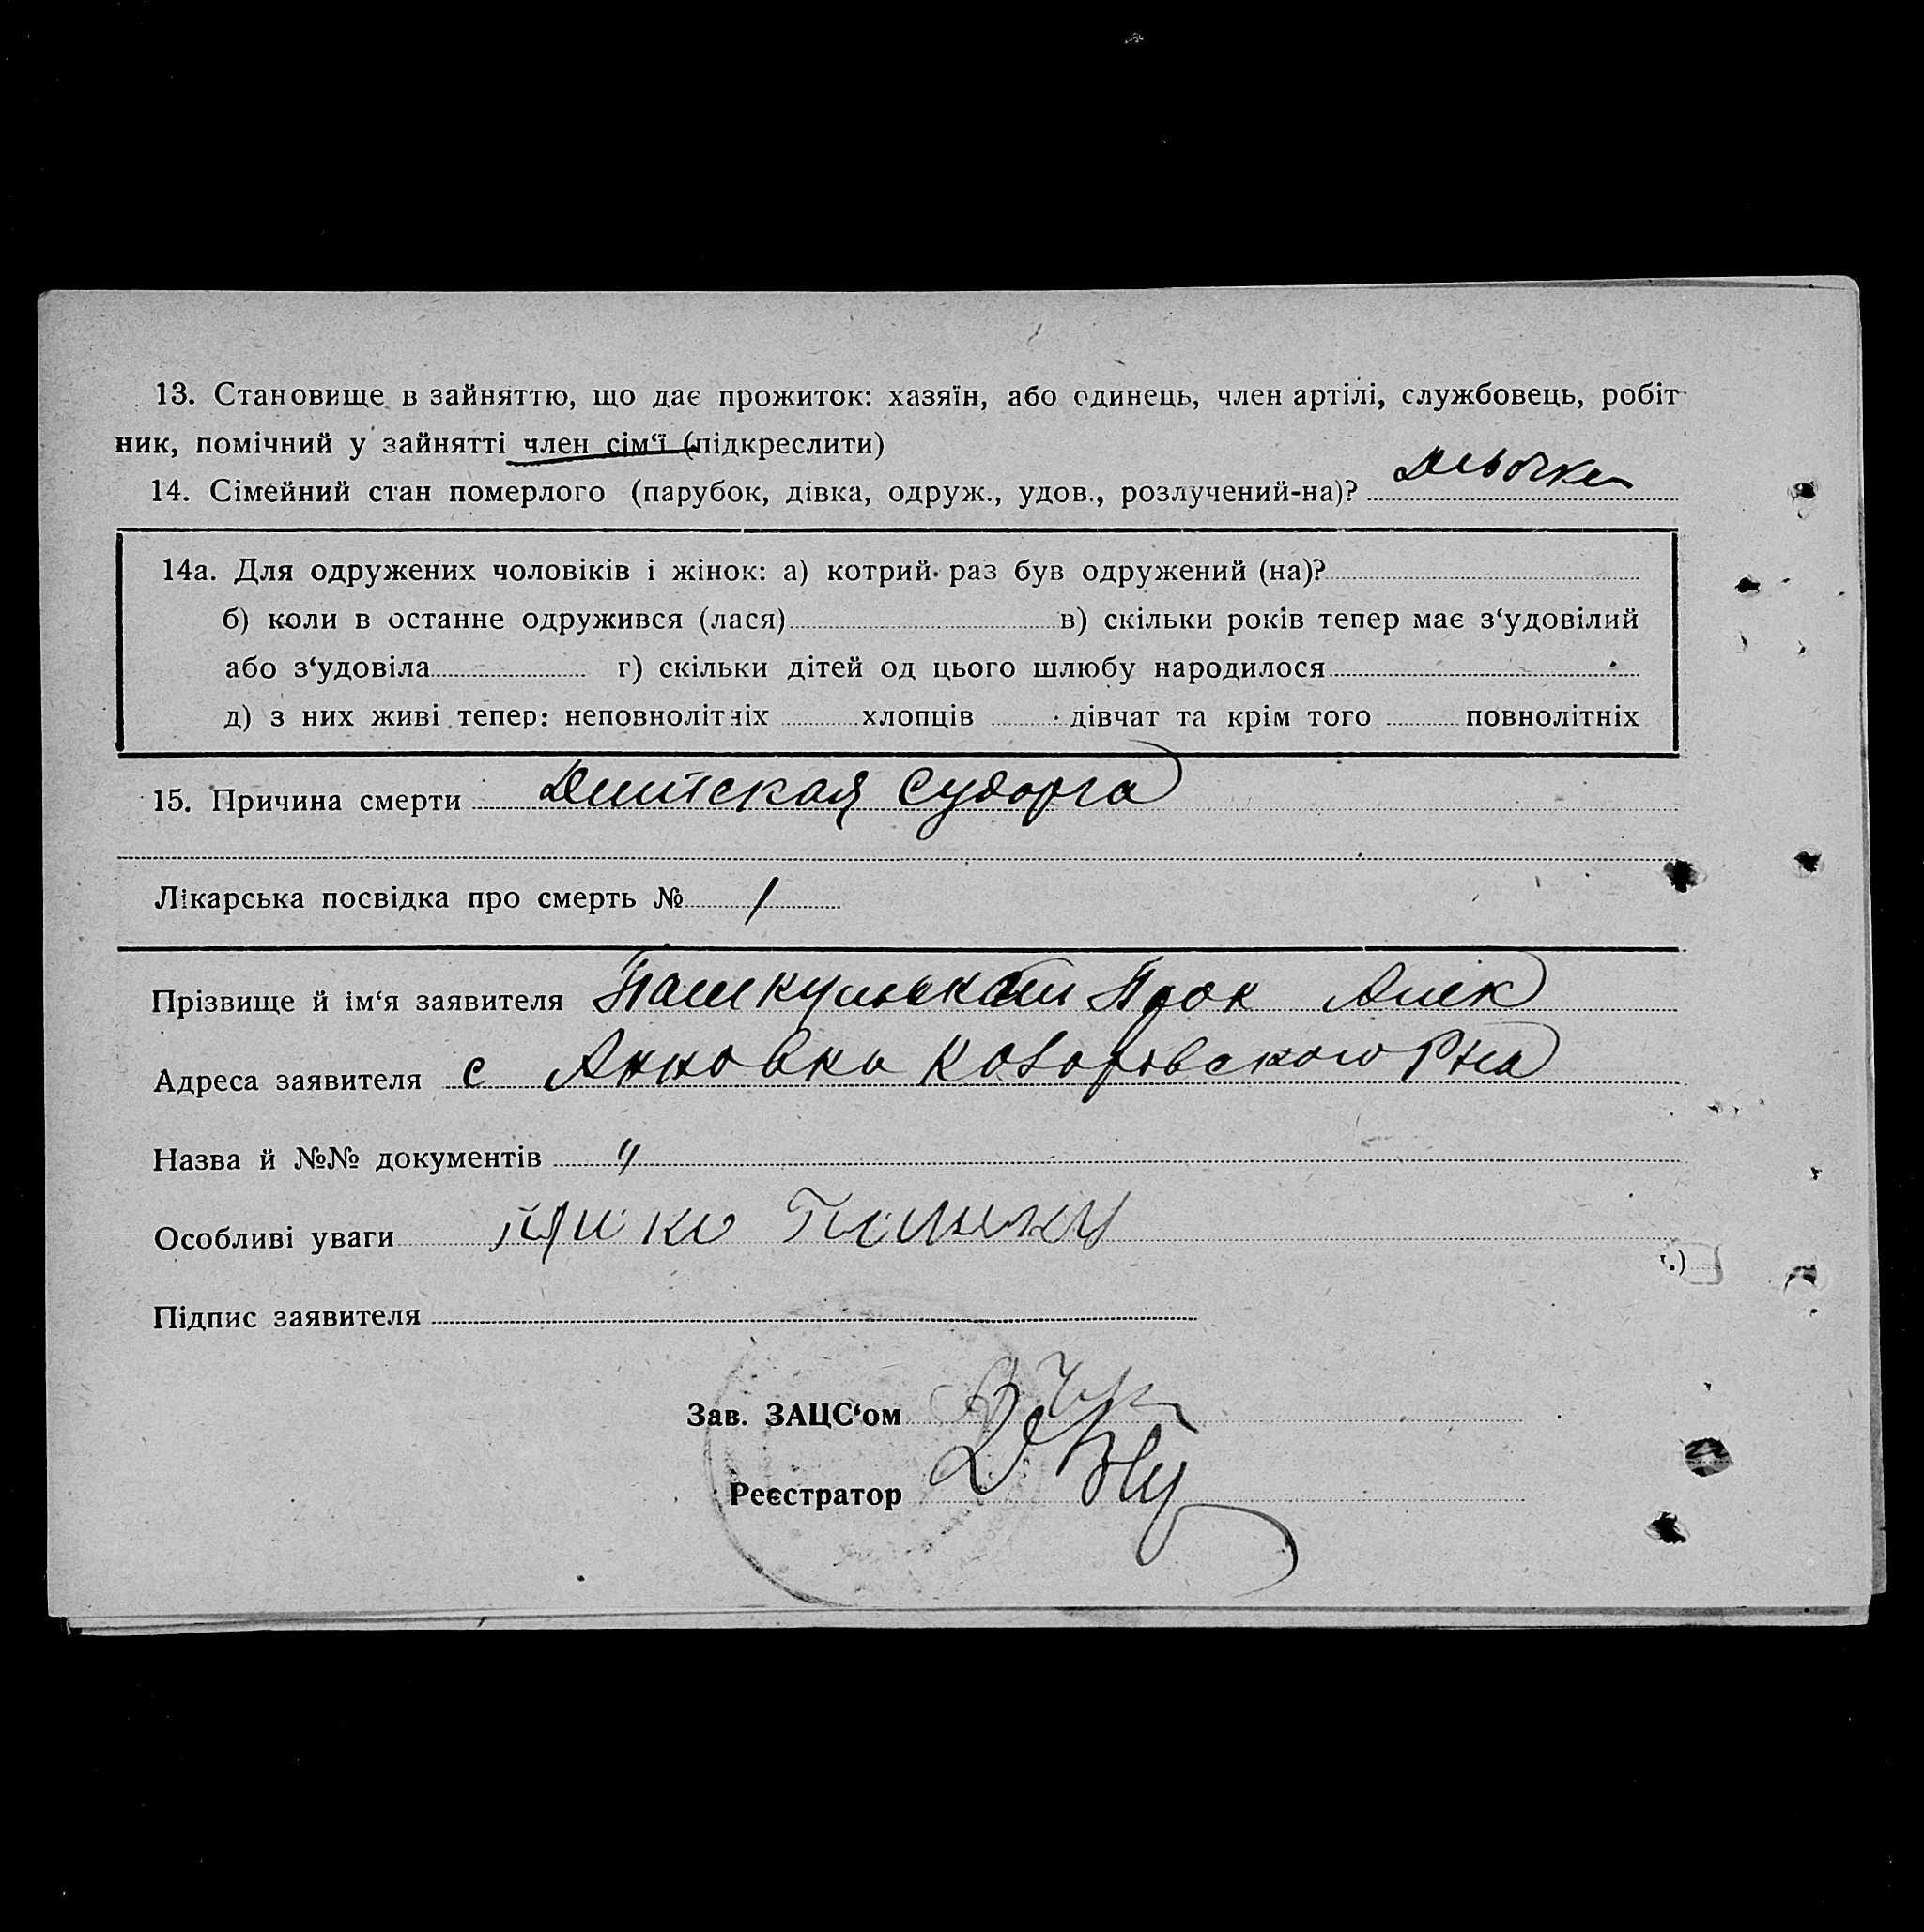 13. Становище в зайняттю, що дає прожиток: хазяїн, або одинець, член артілі, службовець, робіт-
ник, помічний у зайнятті член сім‘ї (підкреслити)
14. Сімейний стан померлого (парубок, дівка, одруж., удов., розлучений-на)?
14а. Для одружених чоловіків і жінок: а) котрий раз був одружений (на)?
б) коли в останне одружився (лася) в) скільки років тепер має з‘удовілий
або з‘удовіла г) скільки дітей од цього шлюбу народилося
д) з них живі тепер: неповнолітніх хлопців дівчат та крім того повнолітніх
15. Причина смерти Дитская судорга
Лікарська посвідка про смерть № /
Прізвище й ім‘я заявителя Прок
Адреса заявителя с Анновка
Назва й №№ документів
Особливі уваги
Підпис заявителя
Зав. ЗАЦС‘ом
Реєстратор